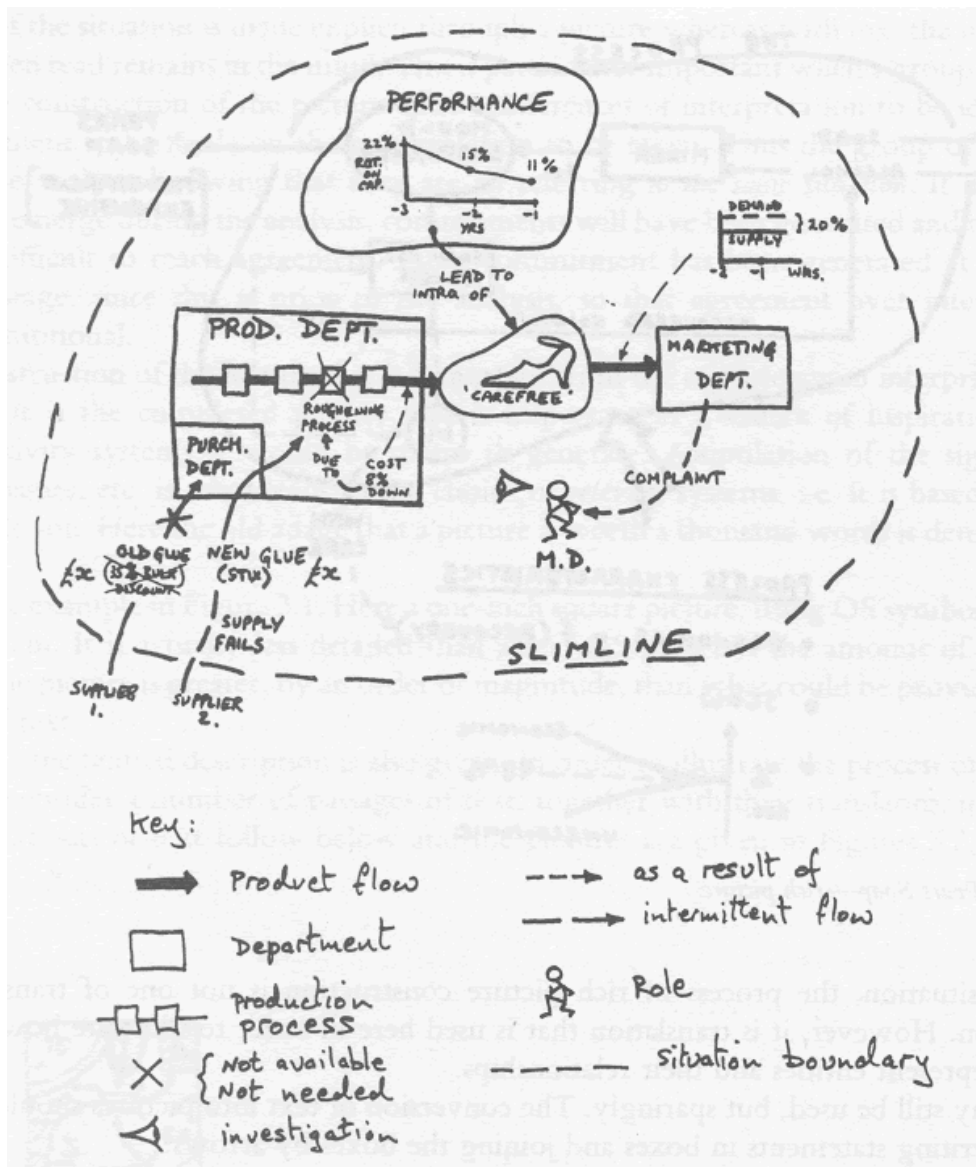 PERFORMANCE
22%
RET.
ON
CAP.
15%
11%
-3
YRS
LEAD TO
INTRO. OF
DEMAND
SUPPLY
20%
WKS.
PROD. DEPT.
ROUGHENING
PROCESS
DUE
TO
COST
8%
DOWN
CAREFREE
MARKETING
DEPT.
PURCH.
DEPT.
COMPLAINT
M.D.
OLD GLUE
£x
DISCOUNT
NEW GLUE
(STUX)
£x
SUPPLY
FAILS
SUPPLIER
1.
SUPPLIER
2.
SLIMLINE
Key:
Product flow
Department
production
process
Not available
Not needed
investigation
as a result of
intermittent flow
Role
situation boundary